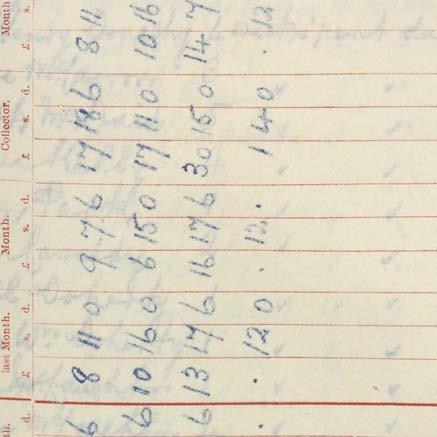 th. last Month. Month. Collector. Month
d. £ s. d. £ s. d. £ s. d. £ s.
6 8 11 0 9 7 6 17 18 6 8 11
6 10 16 0 6 15 0 17 11 0 10 16
6 13 17 6 16 17 6 30 15 0 14 7
. . 12 0 . 12 . 1 4 0 . 12